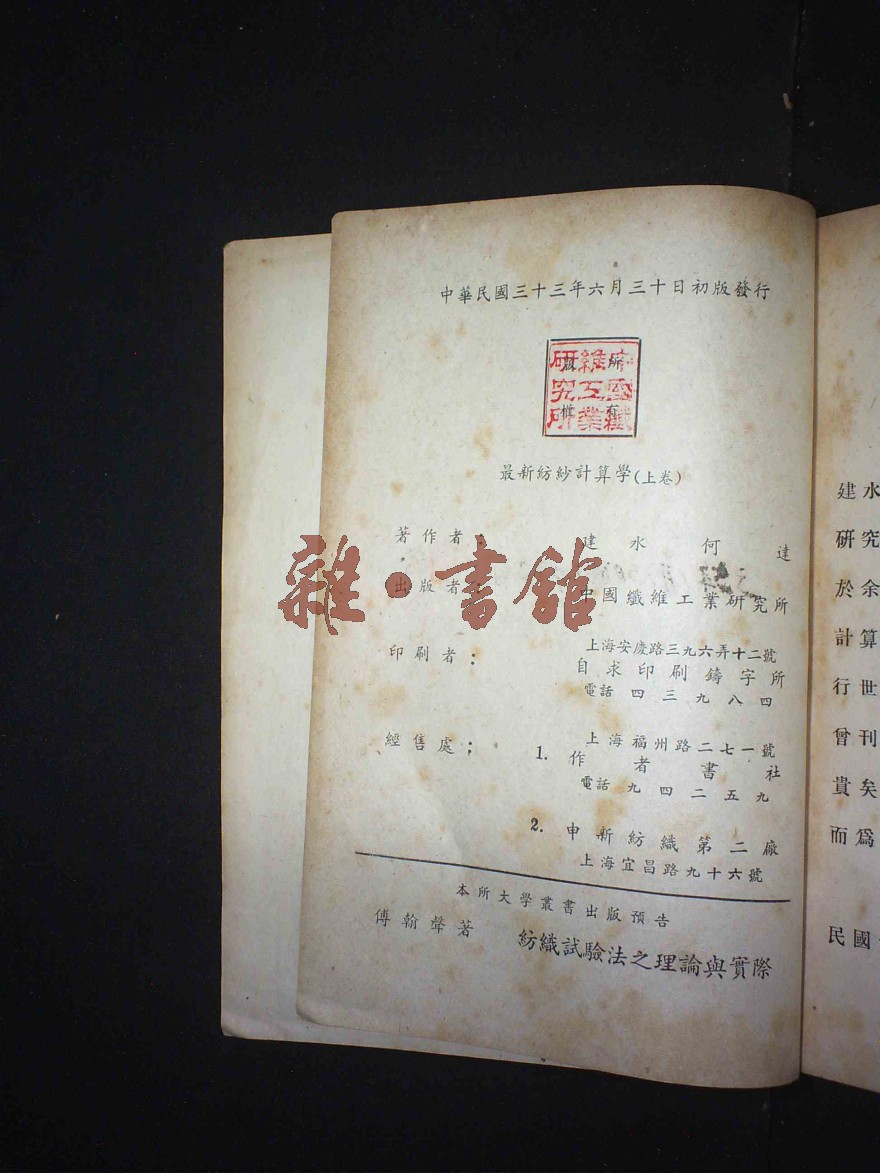 中華民國三十三年六月三十日初版發行
所有
版權
中國纖維工業研究所
最新紡紗計算學(上卷)
著作者:
建水何達
出版者:
中國纖維工業研究所
印刷者:
上海安慶路三九六弄十二號
自求印刷鑄字所
電話四三九八四
經售處:
1.
上海福州路二七一號
作者書社
電話九四二五九
2.
申新紡織第二廠
上海宜昌路九十六號
本所大學叢書出版預告
傅翰聲著
紡織試驗法之理論與實際
雜·書館
建水
研究
於余
計算
行世
曾刊
貴矣
而爲
民國